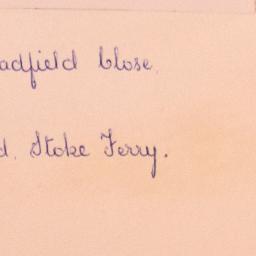 adfield Close.
d. Stoke Ferry.